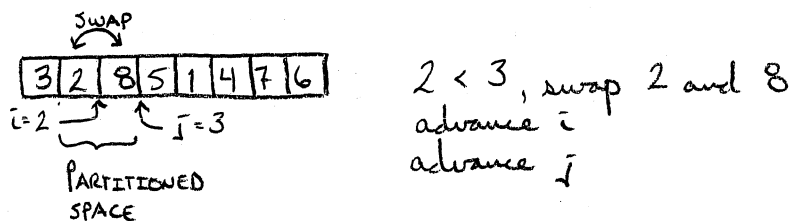 SWAP
3 2 8 5 1 4 7 6
i=2 j=3
PARTITIONED
SPACE
2 < 3, swap 2 and 8
advance i
advance j